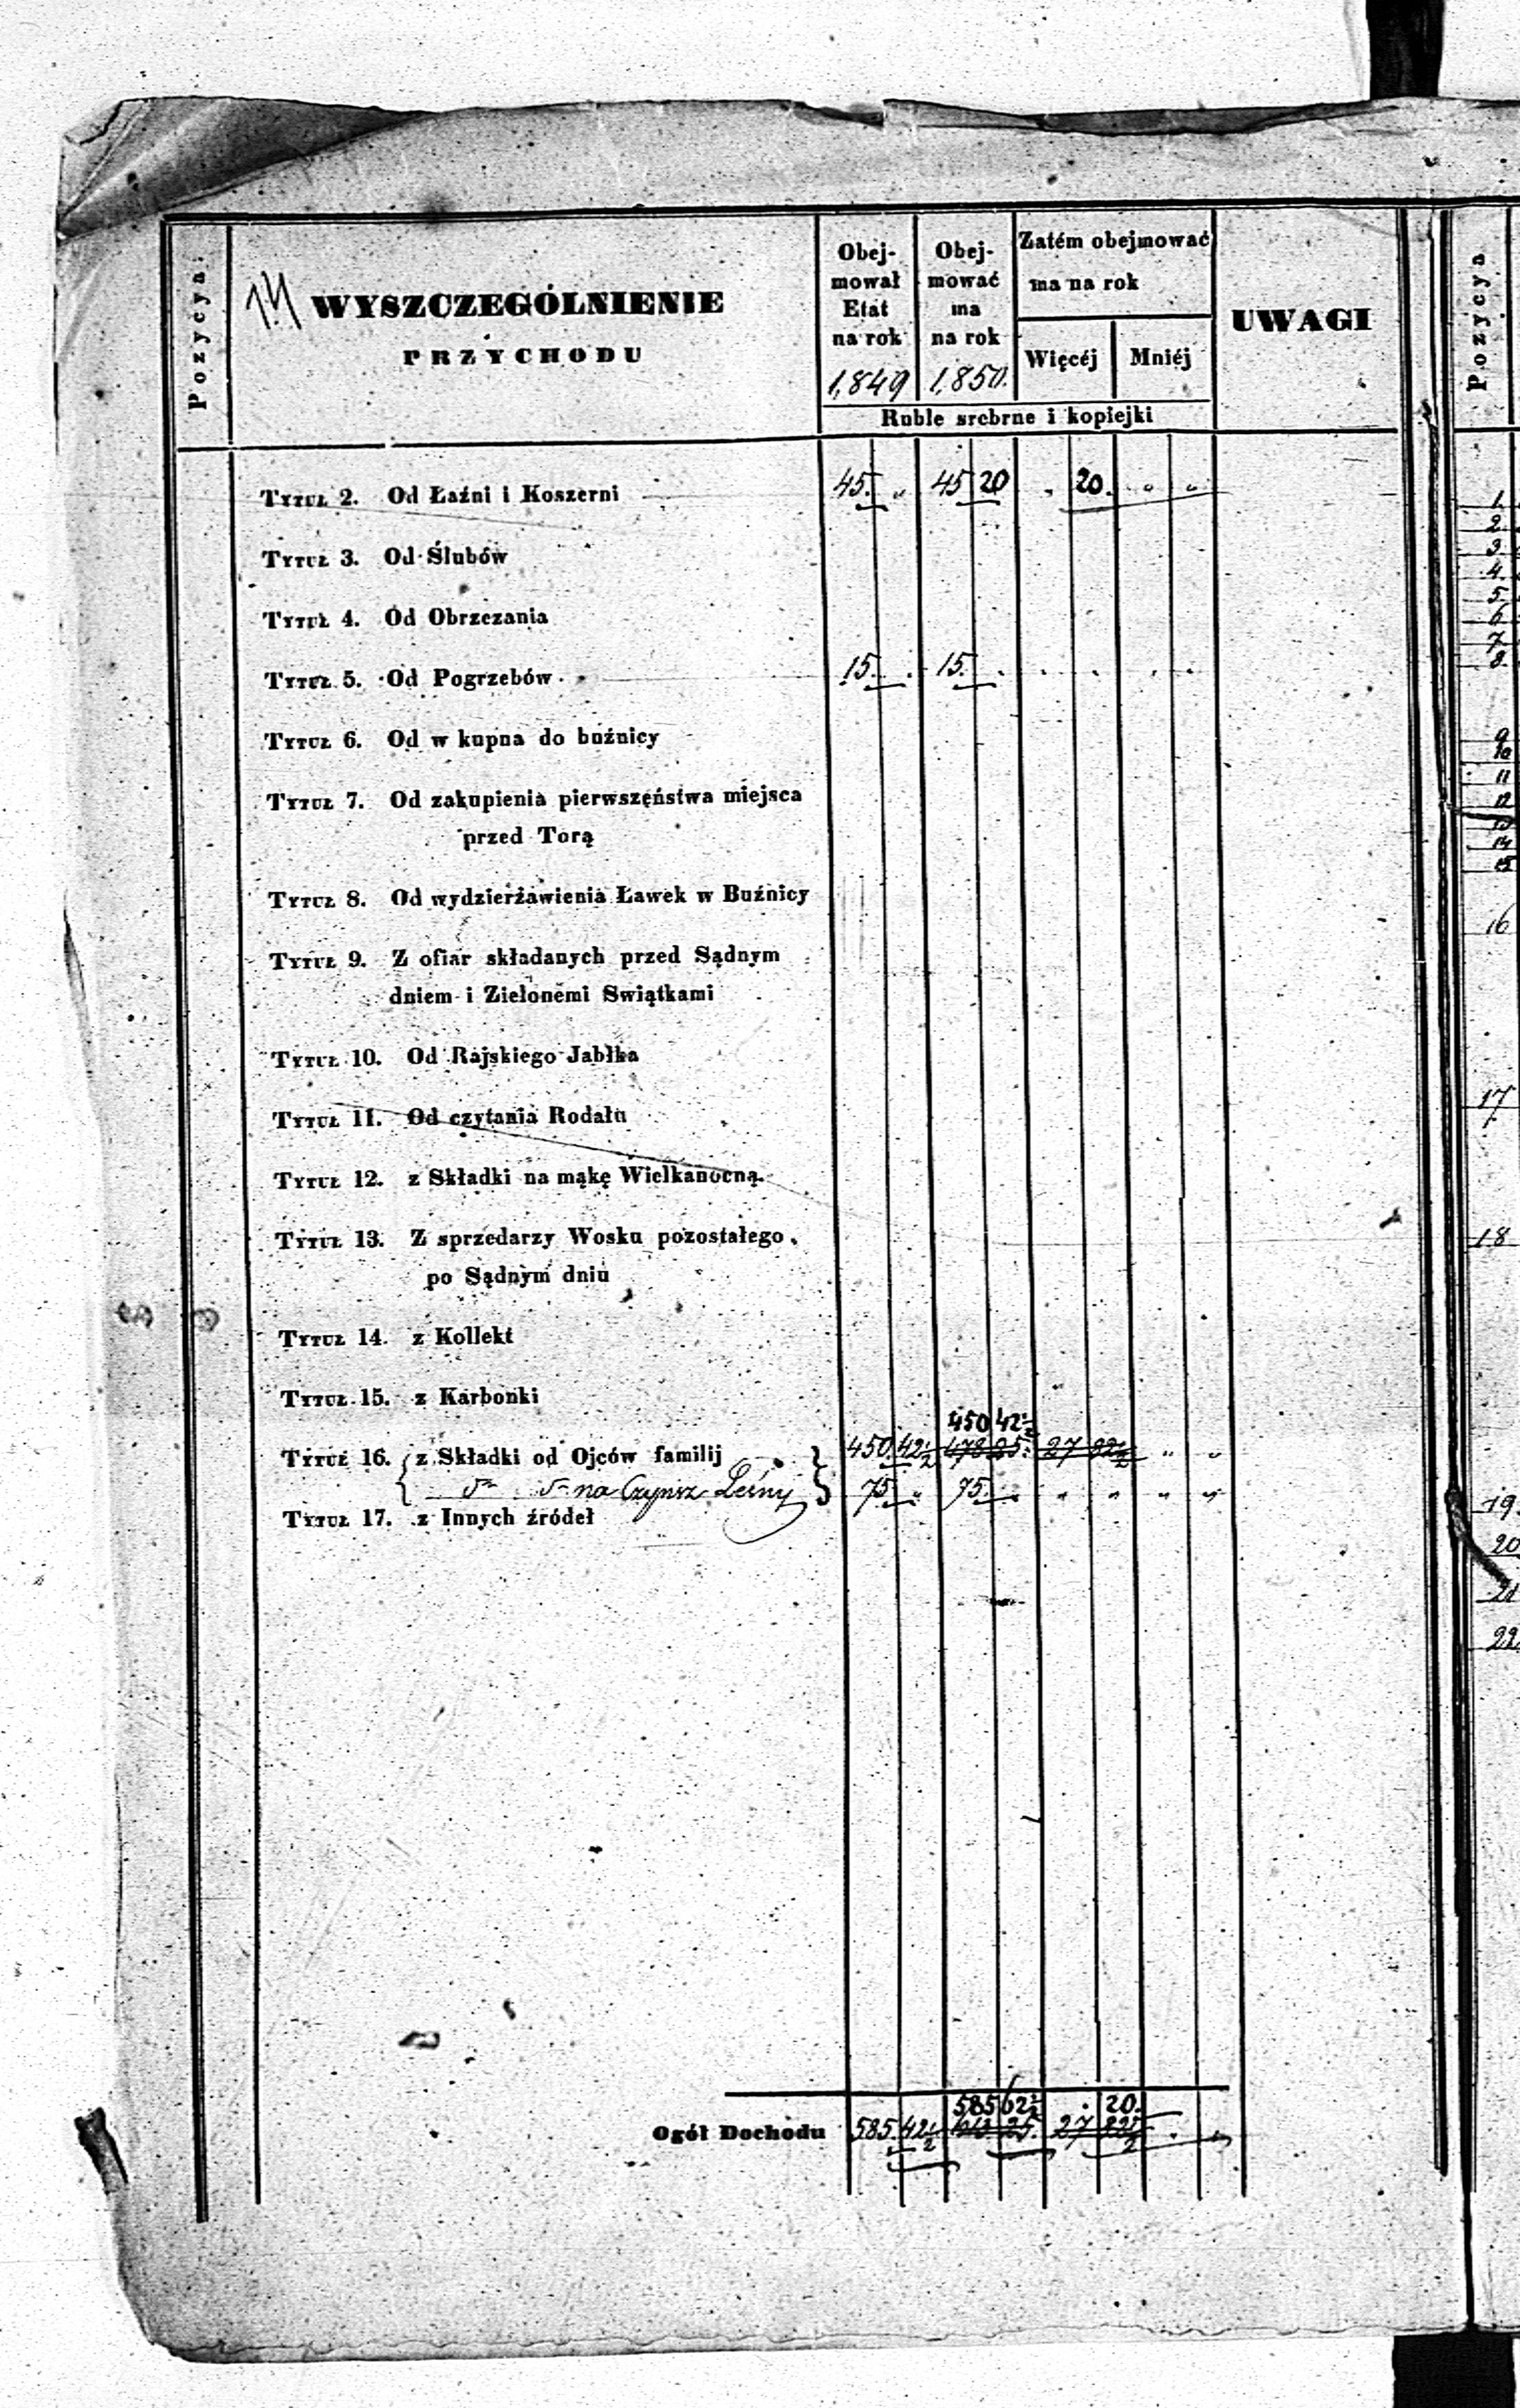 Pozycya
14 WYSZCZEGÓLNIENIE
PRZYCHODU
Obej-
mował
Etat
na rok
1,849
Obej-
mować
ma
na rok
1,850.
Zatém obejmować
ma na rok
Więcéj Mniéj
Ruble srebrne i kopiejki
UWAGI
Pozycya
Tytuł 2. Od Łaźni i Koszerni 45. „ 45 20 „ 20. „ „
Tytuł 3. Od Ślubów
Tytuł 4. Od Obrzezania
Tytuł 5. Od Pogrzebów 15. . 15. . . . . .
Tytuł 6. Od w kupna do buźnicy
Tytuł 7. Od zakupienia pierwszeństwa miejsca
przed Torą
Tytuł 8. Od wydzierżawienia Ławek w Buźnicy
Tytuł 9. Z ofiar składanych przed Sądnym
dniem i Zielonemi Swiątkami
Tytuł 10. Od Rajskiego Jabłka
Tytuł 11. Od czytania Rodału
Tytuł 12. z Składki na mąkę Wielkanocną.
Tytuł 13. Z sprzedarzy Wosku pozostałego
po Sądnym dniu
Tytuł 14. z Kollekt
Tytuł 15. z Karbonki
450 42½
Tytuł 16. z Składki od Ojców familij 450. 42½ 478 25. 27 82½ „ „
na Czynsz Leśny 75. „ 75. „ „ „ „ „
Tytuł 17. z Innych źródeł
585 62½ . 20.
Ogół Dochodu 585. 42½ 613 25. 27 82½ . „
1.
2.
3
4.
5.
6
7
8.
9
10
11
12
13
14
15
16
17
18
19.
20
21
22